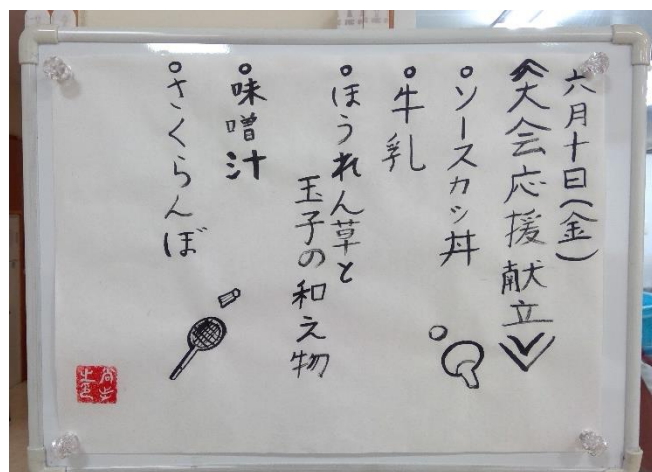 六月十日(金)
《大会応援献立》
○ソースカツ丼
○牛乳
○ほうれん草と
玉子の和え物
○味噌汁
○さくらんぼ